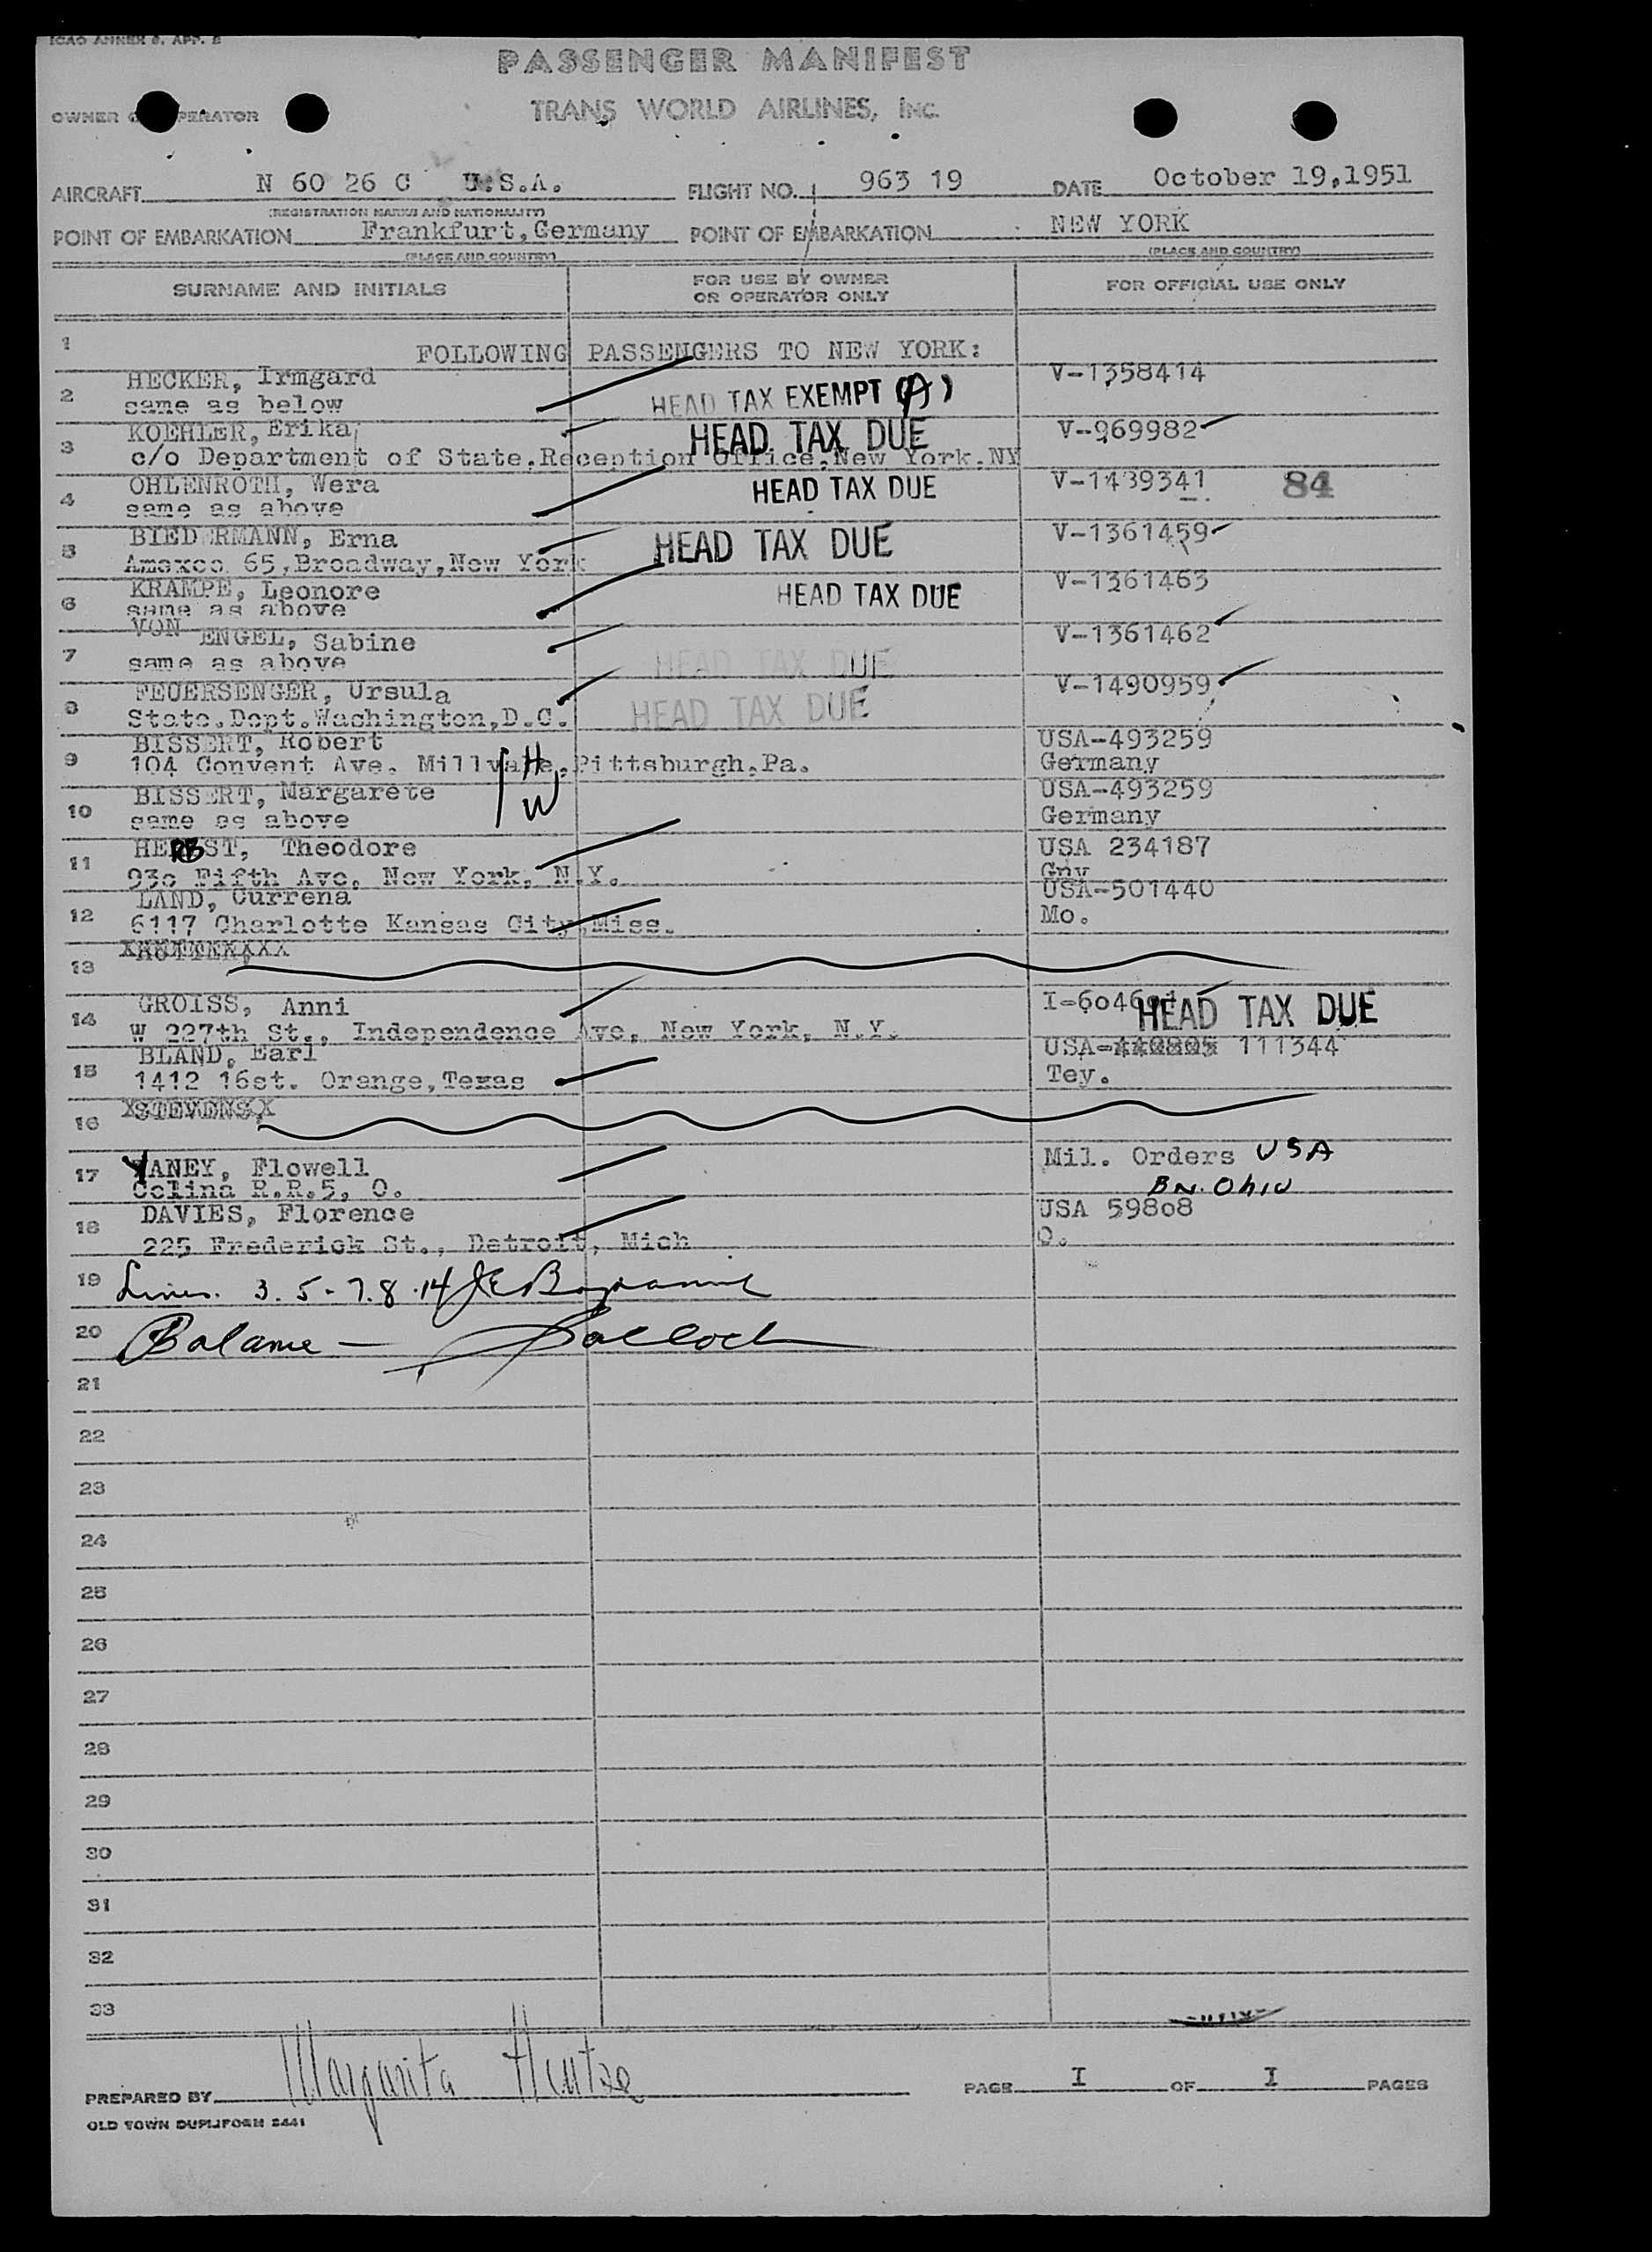 ICAO ANNEX 9, APP. 2
PASSENGER MANIFEST
OWNER OPERATOR TRANS WORLD AIRLINES, INC.
AIRCRAFT N 60 26 C U.S.A. FLIGHT NO. 963 19 DATE October 19,1951
(REGISTRATION MARKS AND NATIONALITY)
POINT OF EMBARKATION Frankfurt,Germany POINT OF EMBARKATION NEW YORK
(PLACE AND COUNTRY) (PLACE AND COUNTRY)
SURNAME AND INITIALS FOR USE BY OWNER OR OPERATOR ONLY FOR OFFICIAL USE ONLY
1 FOLLOWING PASSENGERS TO NEW YORK:
2 HECKER, Irmgard V-1358414
same as below HEAD TAX EXEMPT (A)
3 KOEHLER, Erika HEAD TAX DUE V-969982
c/o Department of State,Reception Office,New York.NY
4 OHLENROTH, Wera HEAD TAX DUE V-1439341 84
same as above
5 BIEDERMANN, Erna HEAD TAX DUE V-1361459
Amexco 65,Broadway,New York
6 KRAMPE, Leonore HEAD TAX DUE V-1361463
same as above
7 VON ENGEL, Sabine V-1361462
same as above HEAD TAX DUE
8 FEUERSENGER, Ursula V-1490959
State.Dept.Washington,D.C. HEAD TAX DUE
9 BISSERT, Robert USA-493259
104 Convent Ave. Millvale,Pittsburgh,Pa. Germany
H
W
10 BISSERT, Margarete USA-493259
same as above Germany
11 HERBST, Theodore USA 234187
930 Fifth Ave, New York, N.Y. Gny
12 LAND, Currena USA-501440
6117 Charlotte Kansas City,Miss. Mo.
13
14 GROISS, Anni HEAD TAX DUE
W 227th St., Independence Ave, New York, N.Y.
15 BLAND, Earl USA- 111344
1412 16st. Orange,Texas Tey.
16 XSTEVENS,X
17 YANEY, Flowell Mil. Orders USA
Celina R.R.5, O. BN. Ohio
18 DAVIES, Florence USA 59808
225 Frederick St., Detroit, Mich O.
19 Lines. 3. 5-7.8.14
20 Balance —
21
22
23
24
25
26
27
28
29
30
31
32
33
PREPARED BY Margarita Hentze PAGE I OF I PAGES
OLD TOWN DUPLIFORM 2441